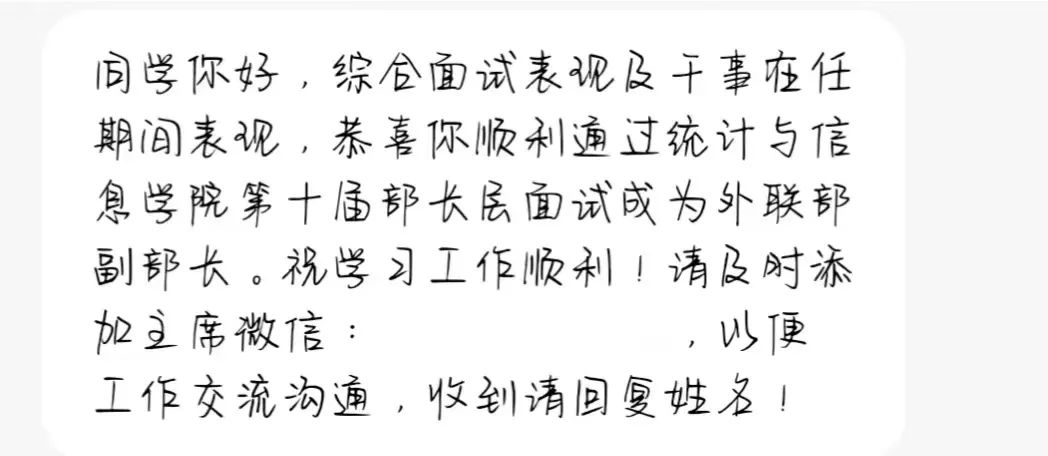 同学你好，综合面试表现及干事在任
期间表现，恭喜你顺利通过统计与信
息学院第十届部长层面试成为外联部
副部长。祝学习工作顺利！请及时添
加主席微信：，以便
工作交流沟通，收到请回复姓名！